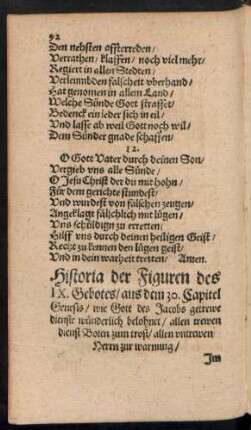 92
Den nehſten affterreden/
Verrathen/ klaffen/ noch viel mehr/
Regiert in allen Stedten/
Verleumbden falſcheit vberhand/
Hat genomen in allem Land/
Welche Sünde Gott ſtraffet/
Bedenck ein ieder ſich in eil/
Vnd laſſe ab weil Gott noch wil/
Dem Sünder gnade ſchaffen/
12.
O Gott Vater durch deinen Son/
Vergieb vns alle Sünde/
O Jeſu Chriſt der du mit hohn/
Für dem gerichte ſtundeſt/
Vnd wurdeſt von falſchen zeugen/
Angeklagt fälſchlich mit lügen/
Vns ſchüldign zu erretten/
Hilff vns durch deinen heiligen Geiſt/
Recht zu kennen den lügen geiſt/
Vnd in dein warheit tretten/ Amen.
Hiſtoria der Figuren des
IX. Gebotes/ aus dem 30. Capitel
Geneſis/ wie Gott des Jacobs getrewe
dienſte wünderlich belohnet/ allen trewen
dienſt Boten zum troſt/ allen vntrewen
Herrn zur warnung/
Im